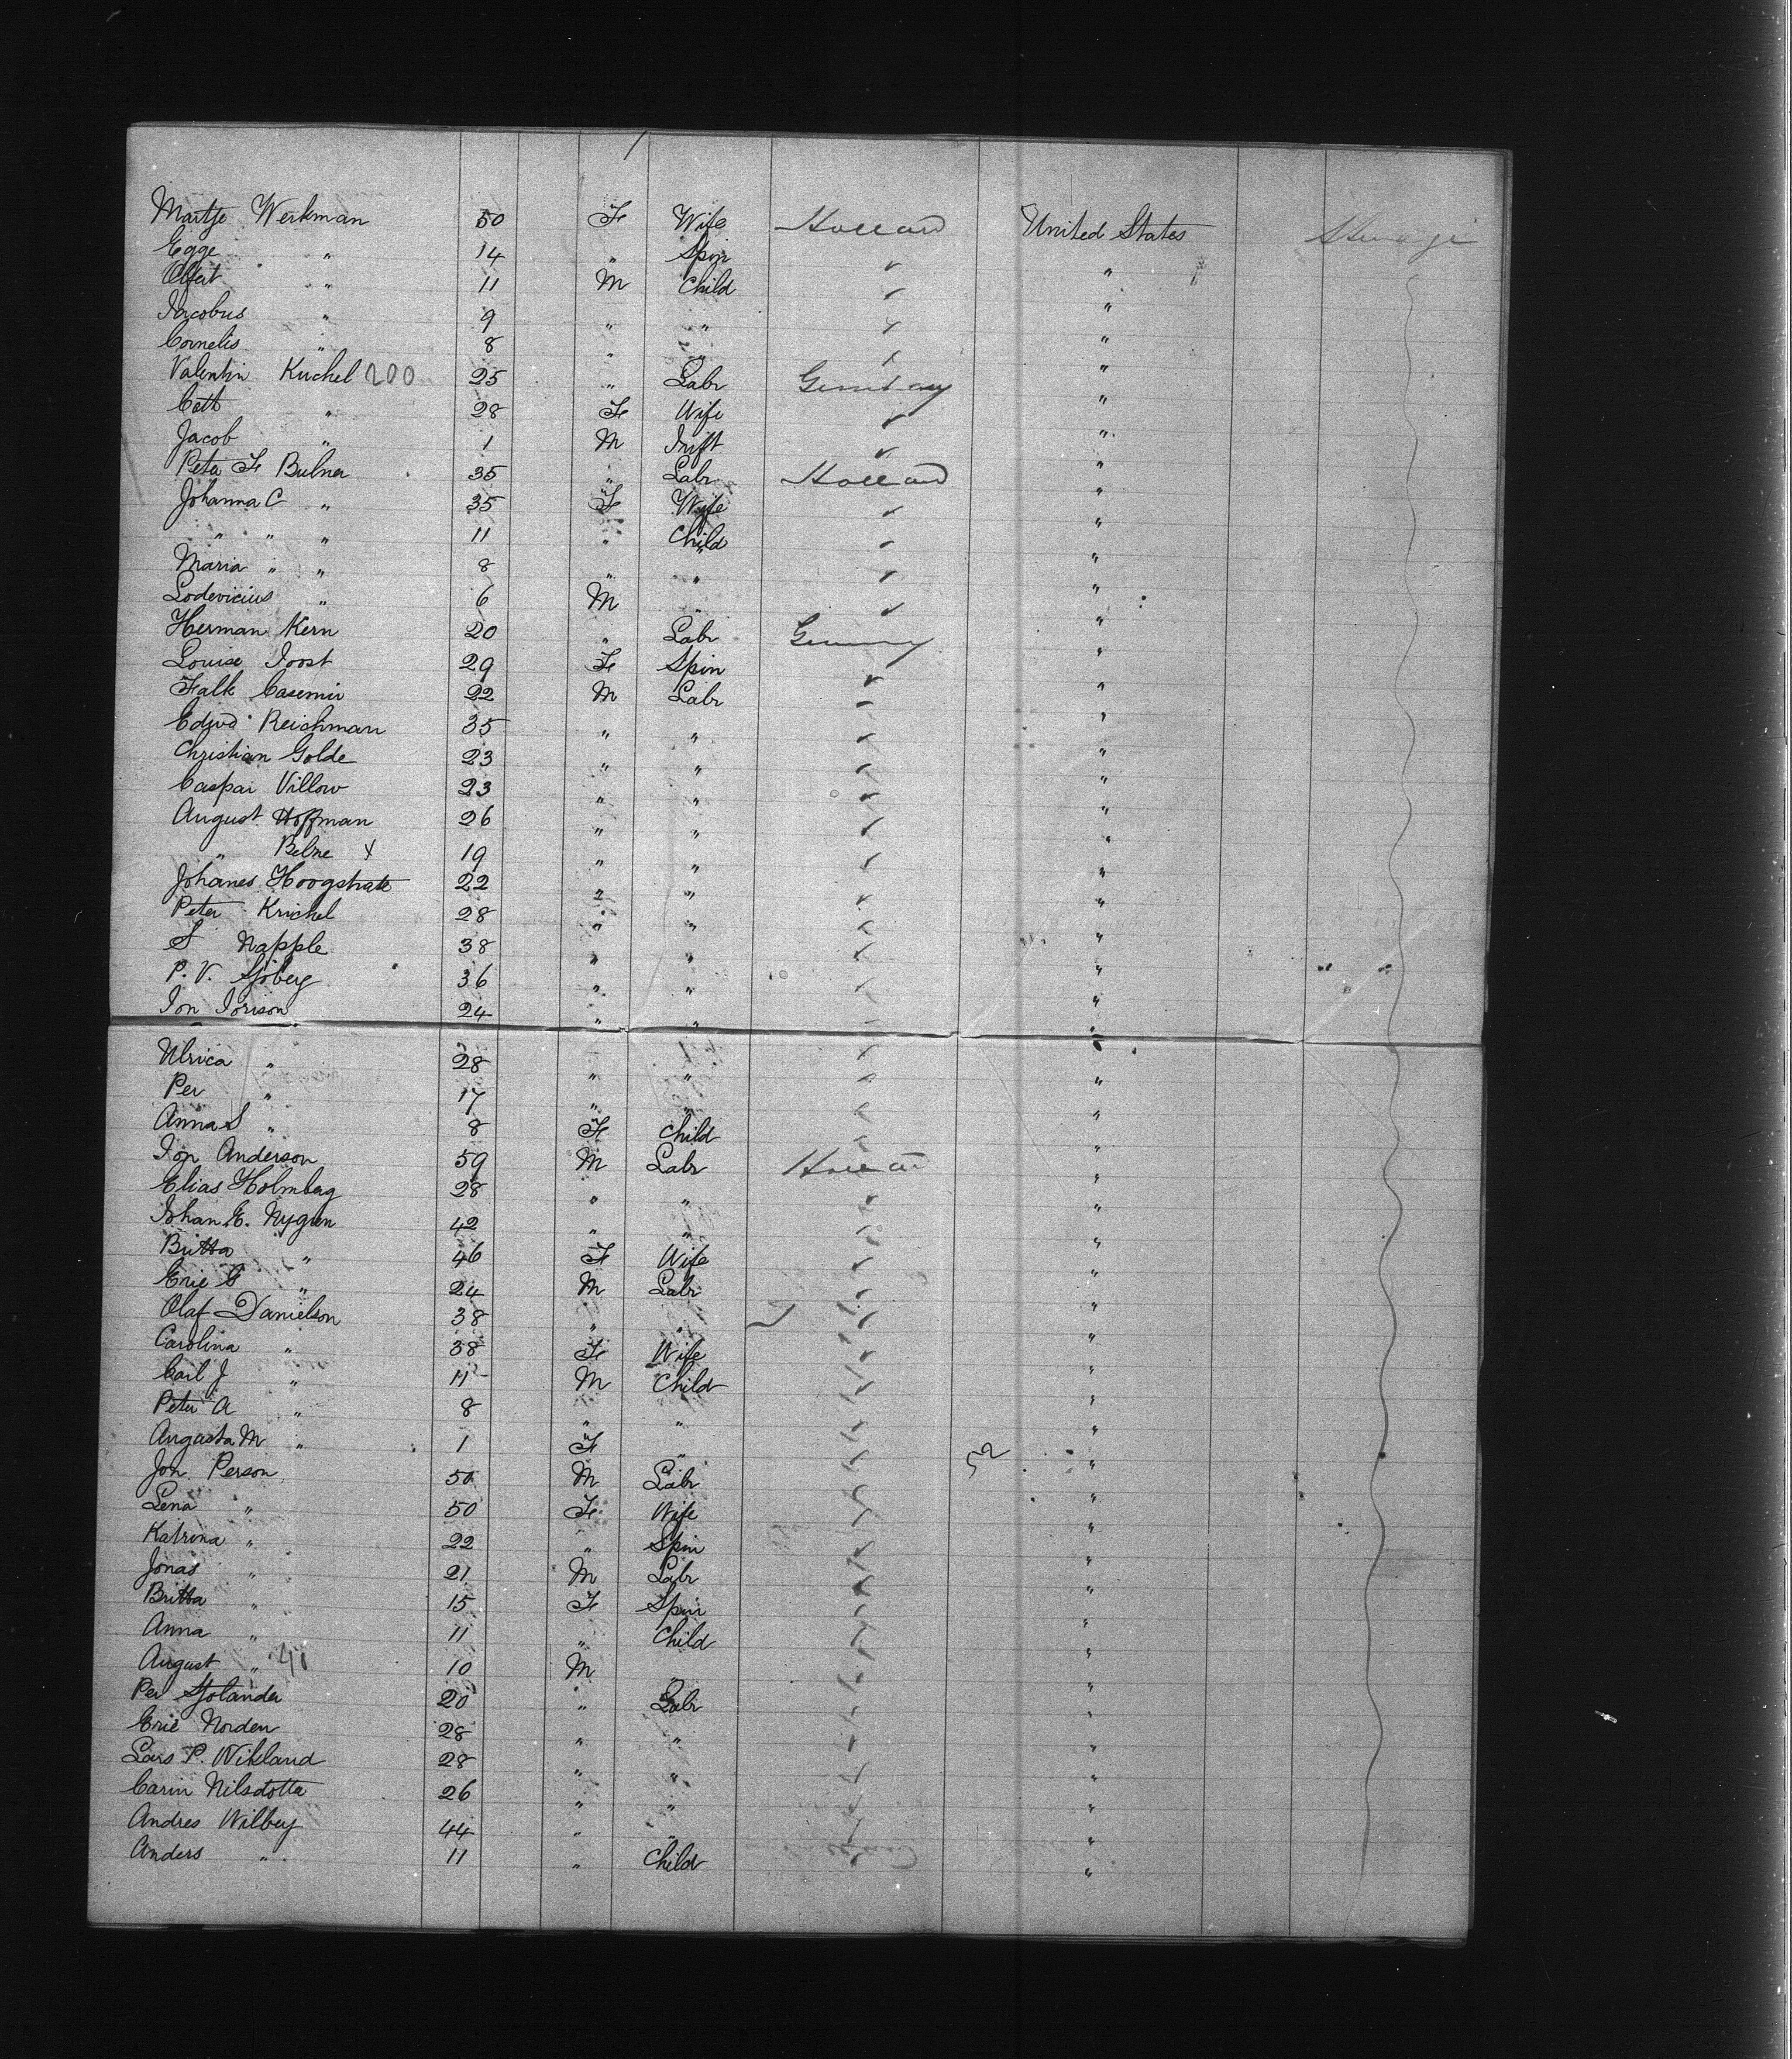 Martje Werkman 50 Fe Wife Holland United States Steerage
Egge " 14 " Spin ✓ "
Olfert " 11 M Child ✓ "
Jacobus " 9 " " ✓ "
Cornelis " 8 " " ✓ "
Valentin Kuchel 200 25 " Labr Germany "
Cath " 28 Fe Wife ✓ "
Jacob " 1 M Inft ✓ "
Peter F Bulner 35 " Labr Holland "
Johanna C " 35 Fe Wife ✓ "
" " " 11 " Child ✓ "
Maria " " 8 " " ✓ "
Lodevicius " 6 M " ✓ "
Herman Kern 20 " Labr Germany "
Louise Joost 29 Fe Spin ✓ "
Falk Casemir 22 M Labr ✓ "
Edwd Reichman 35 " " ✓ "
Christian Golde 23 " " ✓ "
Caspar Villow 23 " " ✓ "
August Hoffman 26 " " ✓ "
" Belne X 19 " " ✓ "
Johanes Hoogstrate 22 " " ✓ "
Peter Krichel 28 " " ✓ "
S Napple 38 " " ✓ "
P. V. Sjoberg 36 " " ✓ "
Jon Jorison 24 " " ✓ "
Ulrica " 28 " " ✓ "
Per " 17 " " ✓ "
Anna S " 8 Fe Child ✓ "
Jon Anderson 59 M Labr Holland "
Elias Holmberg 28 " " ✓ "
Johan E. Nygren 42 " " ✓ "
Britta " 46 Fe Wife ✓ "
Eric G " 24 M Labr ✓ "
Olaf Danielson 38 " " ✓ "
Carolina " 38 Fe Wife ✓ "
Carl J " 11 M Child ✓ "
Peter A " 8 " " ✓ "
Augusta M " 1 Fe " ✓ "
Jon Person 50 M Labr ✓ 52 "
Lena " 50 Fe Wife ✓ "
Katrina " 22 " Spin ✓ "
Jonas " 21 M Labr ✓ "
Britta " 15 Fe Spin ✓ "
Anna " 11 " Child ✓ "
August " 41 10 M " ✓ "
Per Sjolander 20 " Labr ✓ "
Eric Norden 28 " " ✓ "
Lars P. Wikland 28 " " ✓ "
Carin Nilsdotter 26 " " ✓ "
Andres Wilberg 44 " " ✓ "
Anders " 11 " Child ✓ "